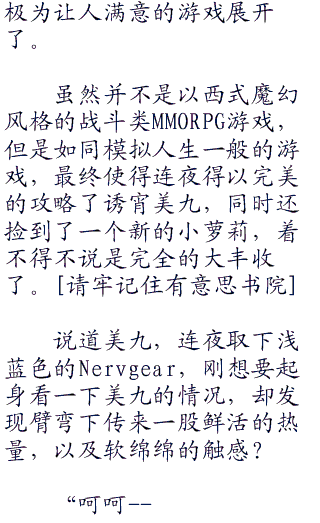 极为让人满意的游戏展开
了。
虽然并不是以西式魔幻
风格的战斗类MMORPG游戏，
但是如同模拟人生一般的游
戏，最终使得连夜得以完美
的攻略了诱宵美九，同时还
捡到了一个新的小萝莉，着
不得不说是完全的大丰收
了。[请牢记住有意思书院]
说道美九，连夜取下浅
蓝色的Nervgear，刚想要起
身看一下美九的情况，却发
现臂弯下传来一股鲜活的热
量，以及软绵绵的触感？
“呵呵--